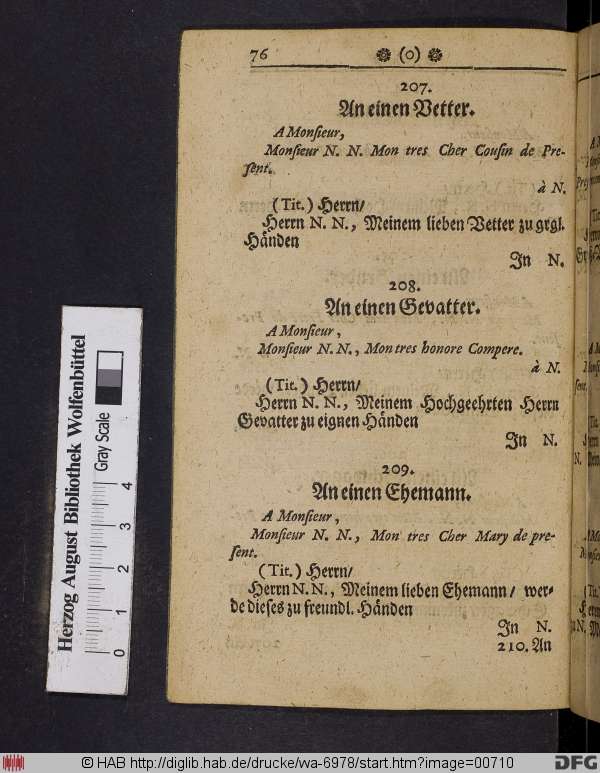 76 (o)
207.
An einen Vetter.
A Monſieur,
Monſieur N. N. Mon tres Cher Couſin de Pre-
ſent.
à N.
(Tit.) Herrn/
Herrn N. N., Meinem lieben Vetter zu grgl.
Händen
In N.
208.
An einen Gevatter.
A Monſieur,
Monſieur N. N., Mon tres honore Compere.
à N.
(Tit.) Herrn/
Herrn N. N., Meinem Hochgeehrten Herrn
Gevatter zu eignen Händen
In N.
209.
An einen Ehemann.
A Monſieur,
Monſieur N. N., Mon tres Cher Mary de pre-
ſent.
(Tit.) Herrn/
Herrn N. N., Meinem lieben Ehemann/ wer-
de dieſes zu freundl. Händen
In N.
210. An
Herzog August Bibliothek Wolfenbüttel
Gray Scale
0 1 2 3 4
© HAB http://diglib.hab.de/drucke/wa-6978/start.htm?image=00710
DFG